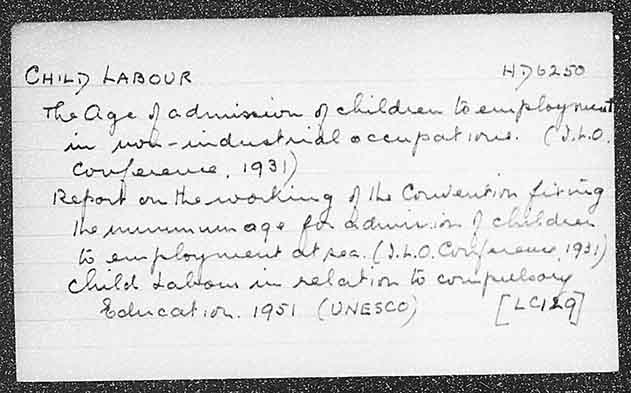 CHILD LABOUR HD6250
The Age of admission of children to employment
in non-industrial occupations. (I.L.O.
Conference, 1931)
Report on the working of the Convention fixing
the minimum age for admission of children
to employment at sea. (I.L.O. Conference, 1931)
Child Labour in relation to compulsory
Education. 1951 (UNESCO) [LC129]